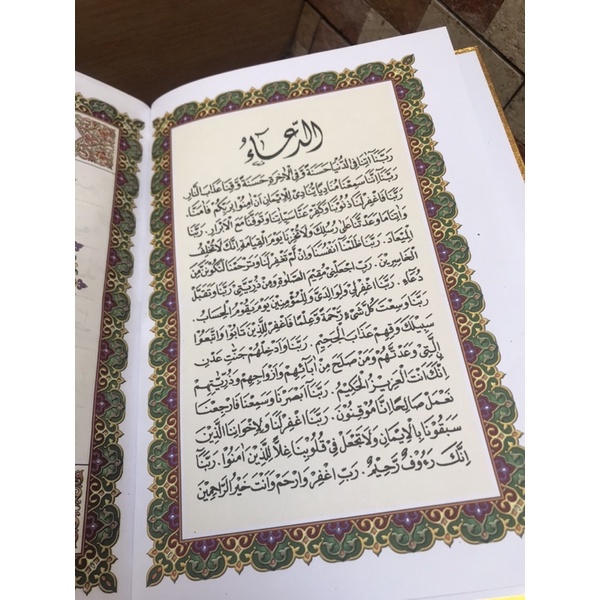 الدُّعَاءُ
رَبَّنَا آتِنَا فِي الدُّنْيَا حَسَنَةً وَفِي الْآخِرَةِ حَسَنَةً وَقِنَا عَذَابَ النَّارِ
رَبَّنَا إِنَّنَا سَمِعْنَا مُنَادِيًا يُنَادِي لِلْإِيمَانِ أَنْ آمِنُوا بِرَبِّكُمْ فَآمَنَّا
رَبَّنَا فَاغْفِرْ لَنَا ذُنُوبَنَا وَكَفِّرْ عَنَّا سَيِّئَاتِنَا وَتَوَفَّنَا مَعَ الْأَبْرَارِ. رَبَّنَا
وَآتِنَا مَا وَعَدْتَنَا عَلَى رُسُلِكَ وَلَا تُخْزِنَا يَوْمَ الْقِيَامَةِ إِنَّكَ لَا تُخْلِفُ
الْمِيعَادَ. رَبَّنَا ظَلَمْنَا أَنْفُسَنَا وَإِنْ لَمْ تَغْفِرْ لَنَا وَتَرْحَمْنَا لَنَكُونَنَّ مِنَ
الْخَاسِرِينَ. رَبِّ اجْعَلْنِي مُقِيمَ الصَّلَوةِ وَمِنْ ذُرِّيَّتِي رَبَّنَا وَتَقَبَّلْ
دُعَاءِ. رَبَّنَا اغْفِرْ لِي وَلِوَالِدَيَّ وَلِلْمُؤْمِنِينَ يَوْمَ يَقُومُ الْحِسَابُ.
رَبَّنَا وَسِعْتَ كُلَّ شَيْءٍ رَحْمَةً وَعِلْمًا فَاغْفِرْ لِلَّذِينَ تَابُوا وَاتَّبَعُوا
سَبِيلَكَ وَقِهِمْ عَذَابَ الْجَحِيمِ. رَبَّنَا وَأَدْخِلْهُمْ جَنَّاتِ عَدْنٍ
الَّتِي وَعَدْتَهُمْ وَمَنْ صَلَحَ مِنْ آبَائِهِمْ وَأَزْوَاجِهِمْ وَذُرِّيَّاتِهِمْ
إِنَّكَ أَنْتَ الْعَزِيزُ الْحَكِيمُ. رَبَّنَا أَبْصَرْنَا وَسَمِعْنَا فَارْجِعْنَا
نَعْمَلْ صَالِحًا إِنَّا مُوقِنُونَ. رَبَّنَا اغْفِرْ لَنَا وَلِإِخْوَانِنَا الَّذِينَ
سَبَقُونَا بِالْإِيمَانِ وَلَا تَجْعَلْ فِي قُلُوبِنَا غِلًّا لِلَّذِينَ آمَنُوا. رَبَّنَا
إِنَّكَ رَءُوفٌ رَحِيمٌ. رَبِّ اغْفِرْ وَارْحَمْ وَأَنْتَ خَيْرُ الرَّاحِمِينَ